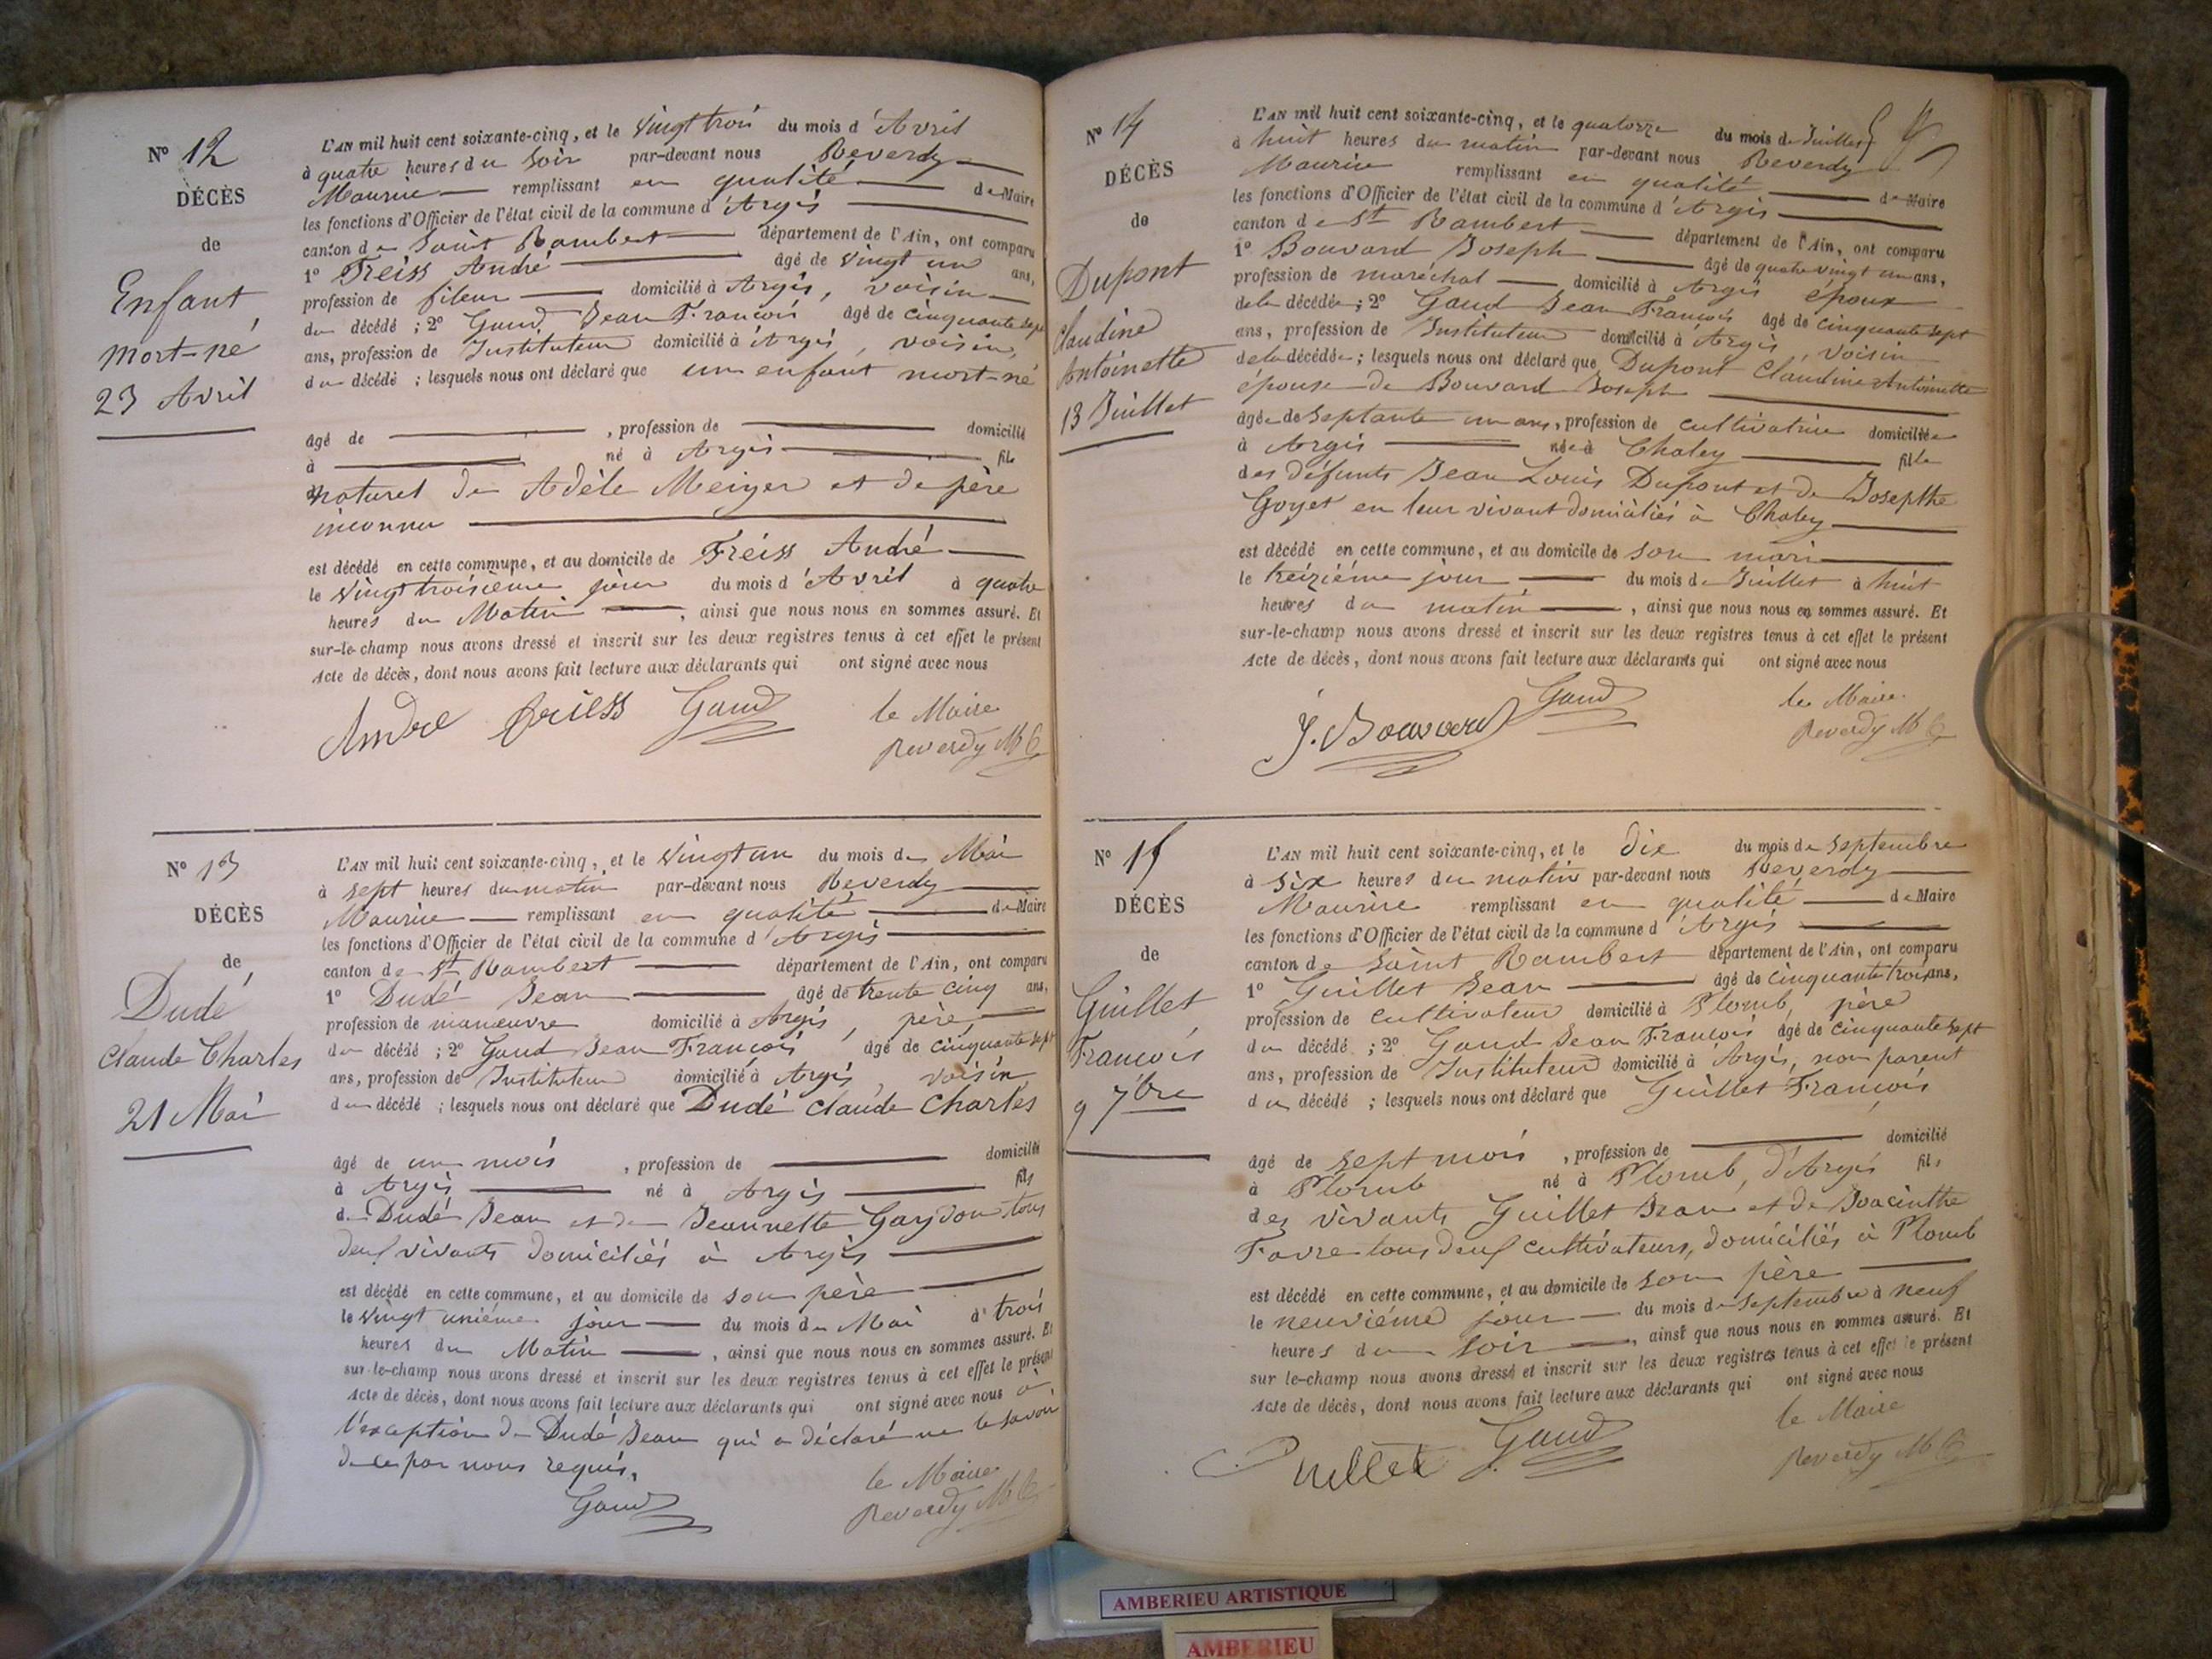 N° 12
DÉCÈS
de
Enfant
mort-né
23 Avril
L'AN mil huit cent soixante-cinq, et le vingt trois du mois d'Avril
à quatre heures du soir par-devant nous Reverdy
Maurice remplissant en qualité de Maire
les fonctions d'Officier de l'état civil de la commune d'Argis
canton de Saint Rambert département de l'Ain, ont comparu
1° Freiss André âgé de vingt un ans,
profession de fileur domicilié à Argis, voisin
du décédé ; 2° Gaud Jean François âgé de cinquante sept
ans, profession de Instituteur domicilié à Argis, voisin,
du décédé ; lesquels nous ont déclaré que un enfant mort-né
âgé de , profession de domicilié
à né à Argis fils
naturel de Adèle Meiger et de père
inconnu
est décédé en cette commune, et au domicile de Freiss André
le vingt troisième jour du mois d'Avril à quatre
heures du Matin , ainsi que nous nous en sommes assuré. Et
sur-le-champ nous avons dressé et inscrit sur les deux registres tenus à cet effet le présent
Acte de décès, dont nous avons fait lecture aux déclarants qui ont signé avec nous
André friess Gaud le Maire
Reverdy M
N° 13
DÉCÈS
de
Dudé
Claude Charles
21 Mai
L'AN mil huit cent soixante-cinq, et le vingt un du mois de Mai
à sept heures du matin par-devant nous Reverdy
Maurice remplissant en qualité de Maire
les fonctions d'Officier de l'état civil de la commune d'Argis
canton de St Rambert département de l'Ain, ont comparu
1° Dudé Jean âgé de trente cinq ans,
profession de manœuvre domicilié à Argis, père
du décédé ; 2° Gaud Jean François âgé de cinquante sept
ans, profession de Instituteur domicilié à Argis, voisin
du décédé ; lesquels nous ont déclaré que Dudé Claude Charles
âgé de un mois , profession de domicilié
à Argis né à Argis fils
de Dudé Jean et de Jeannette Gaydon tous
deux vivants domiciliés à Argis
est décédé en cette commune, et au domicile de son père
le vingt unième jour du mois de Mai à trois
heures du Matin , ainsi que nous nous en sommes assuré. Et
sur-le-champ nous avons dressé et inscrit sur les deux registres tenus à cet effet le présent
Acte de décès, dont nous avons fait lecture aux déclarants qui ont signé avec nous à
l'exception de Dudé Jean qui a déclaré ne le savoir
de ce par nous requis.
Gaud le Maire
Reverdy M
N° 14
DÉCÈS
de
Dupont
Claudine
Antoinette
13 Juillet
L'AN mil huit cent soixante-cinq, et le quatorze du mois de Juillet
à huit heures du matin par-devant nous Reverdy
Maurice remplissant en qualité de Maire
les fonctions d'Officier de l'état civil de la commune d'Argis
canton de St Rambert département de l'Ain, ont comparu
1° Bouvard Joseph âgé de quatre vingt un ans,
profession de maréchal domicilié à Argis époux
de la décédée ; 2° Gaud Jean François âgé de cinquante sept
ans, profession de Instituteur domicilié à Argis, voisin
de la décédée ; lesquels nous ont déclaré que Dupont Claudine Antoinette
épouse de Bouvard Joseph
âgée de septante un ans, profession de cultivatrice domiciliée
à Argis née à Chaley fille
des défunts Jean Louis Dupont et de Josephte
Goyet en leur vivant domiciliés à Chaley
est décédé en cette commune, et au domicile de son mari
le treizième jour du mois de Juillet à huit
heures du matin , ainsi que nous nous en sommes assuré. Et
sur-le-champ nous avons dressé et inscrit sur les deux registres tenus à cet effet le présent
Acte de décès, dont nous avons fait lecture aux déclarants qui ont signé avec nous
J. Bouvard Gaud le Maire
Reverdy M
N° 15
DÉCÈS
de
Guillet
François
9 7bre
L'AN mil huit cent soixante-cinq, et le dix du mois de septembre
à six heures du matin par-devant nous Reverdy
Maurice remplissant en qualité de Maire
les fonctions d'Officier de l'état civil de la commune d'Argis
canton de Saint Rambert département de l'Ain, ont comparu
1° Guillet Jean âgé de cinquante trois ans,
profession de cultivateur domicilié à Plomb, père
du décédé ; 2° Gaud Jean François âgé de cinquante sept
ans, profession de Instituteur domicilié à Argis, non parent
du décédé ; lesquels nous ont déclaré que Guillet François
âgé de sept mois , profession de domicilié
à Plomb né à Plomb, d'Argis fils
des vivants Guillet Jean et de Joacinthe
Favre tous deux cultivateurs, domiciliés à Plomb
est décédé en cette commune, et au domicile de son père
le neuvième jour du mois de septembre à neuf
heures du soir , ainsi que nous nous en sommes assuré. Et
sur le-champ nous avons dressé et inscrit sur les deux registres tenus à cet effet le présent
Acte de décès, dont nous avons fait lecture aux déclarants qui ont signé avec nous
Guillet Gaud le Maire
Reverdy M
AMBERIEU ARTISTIQUE
AMBERIEU